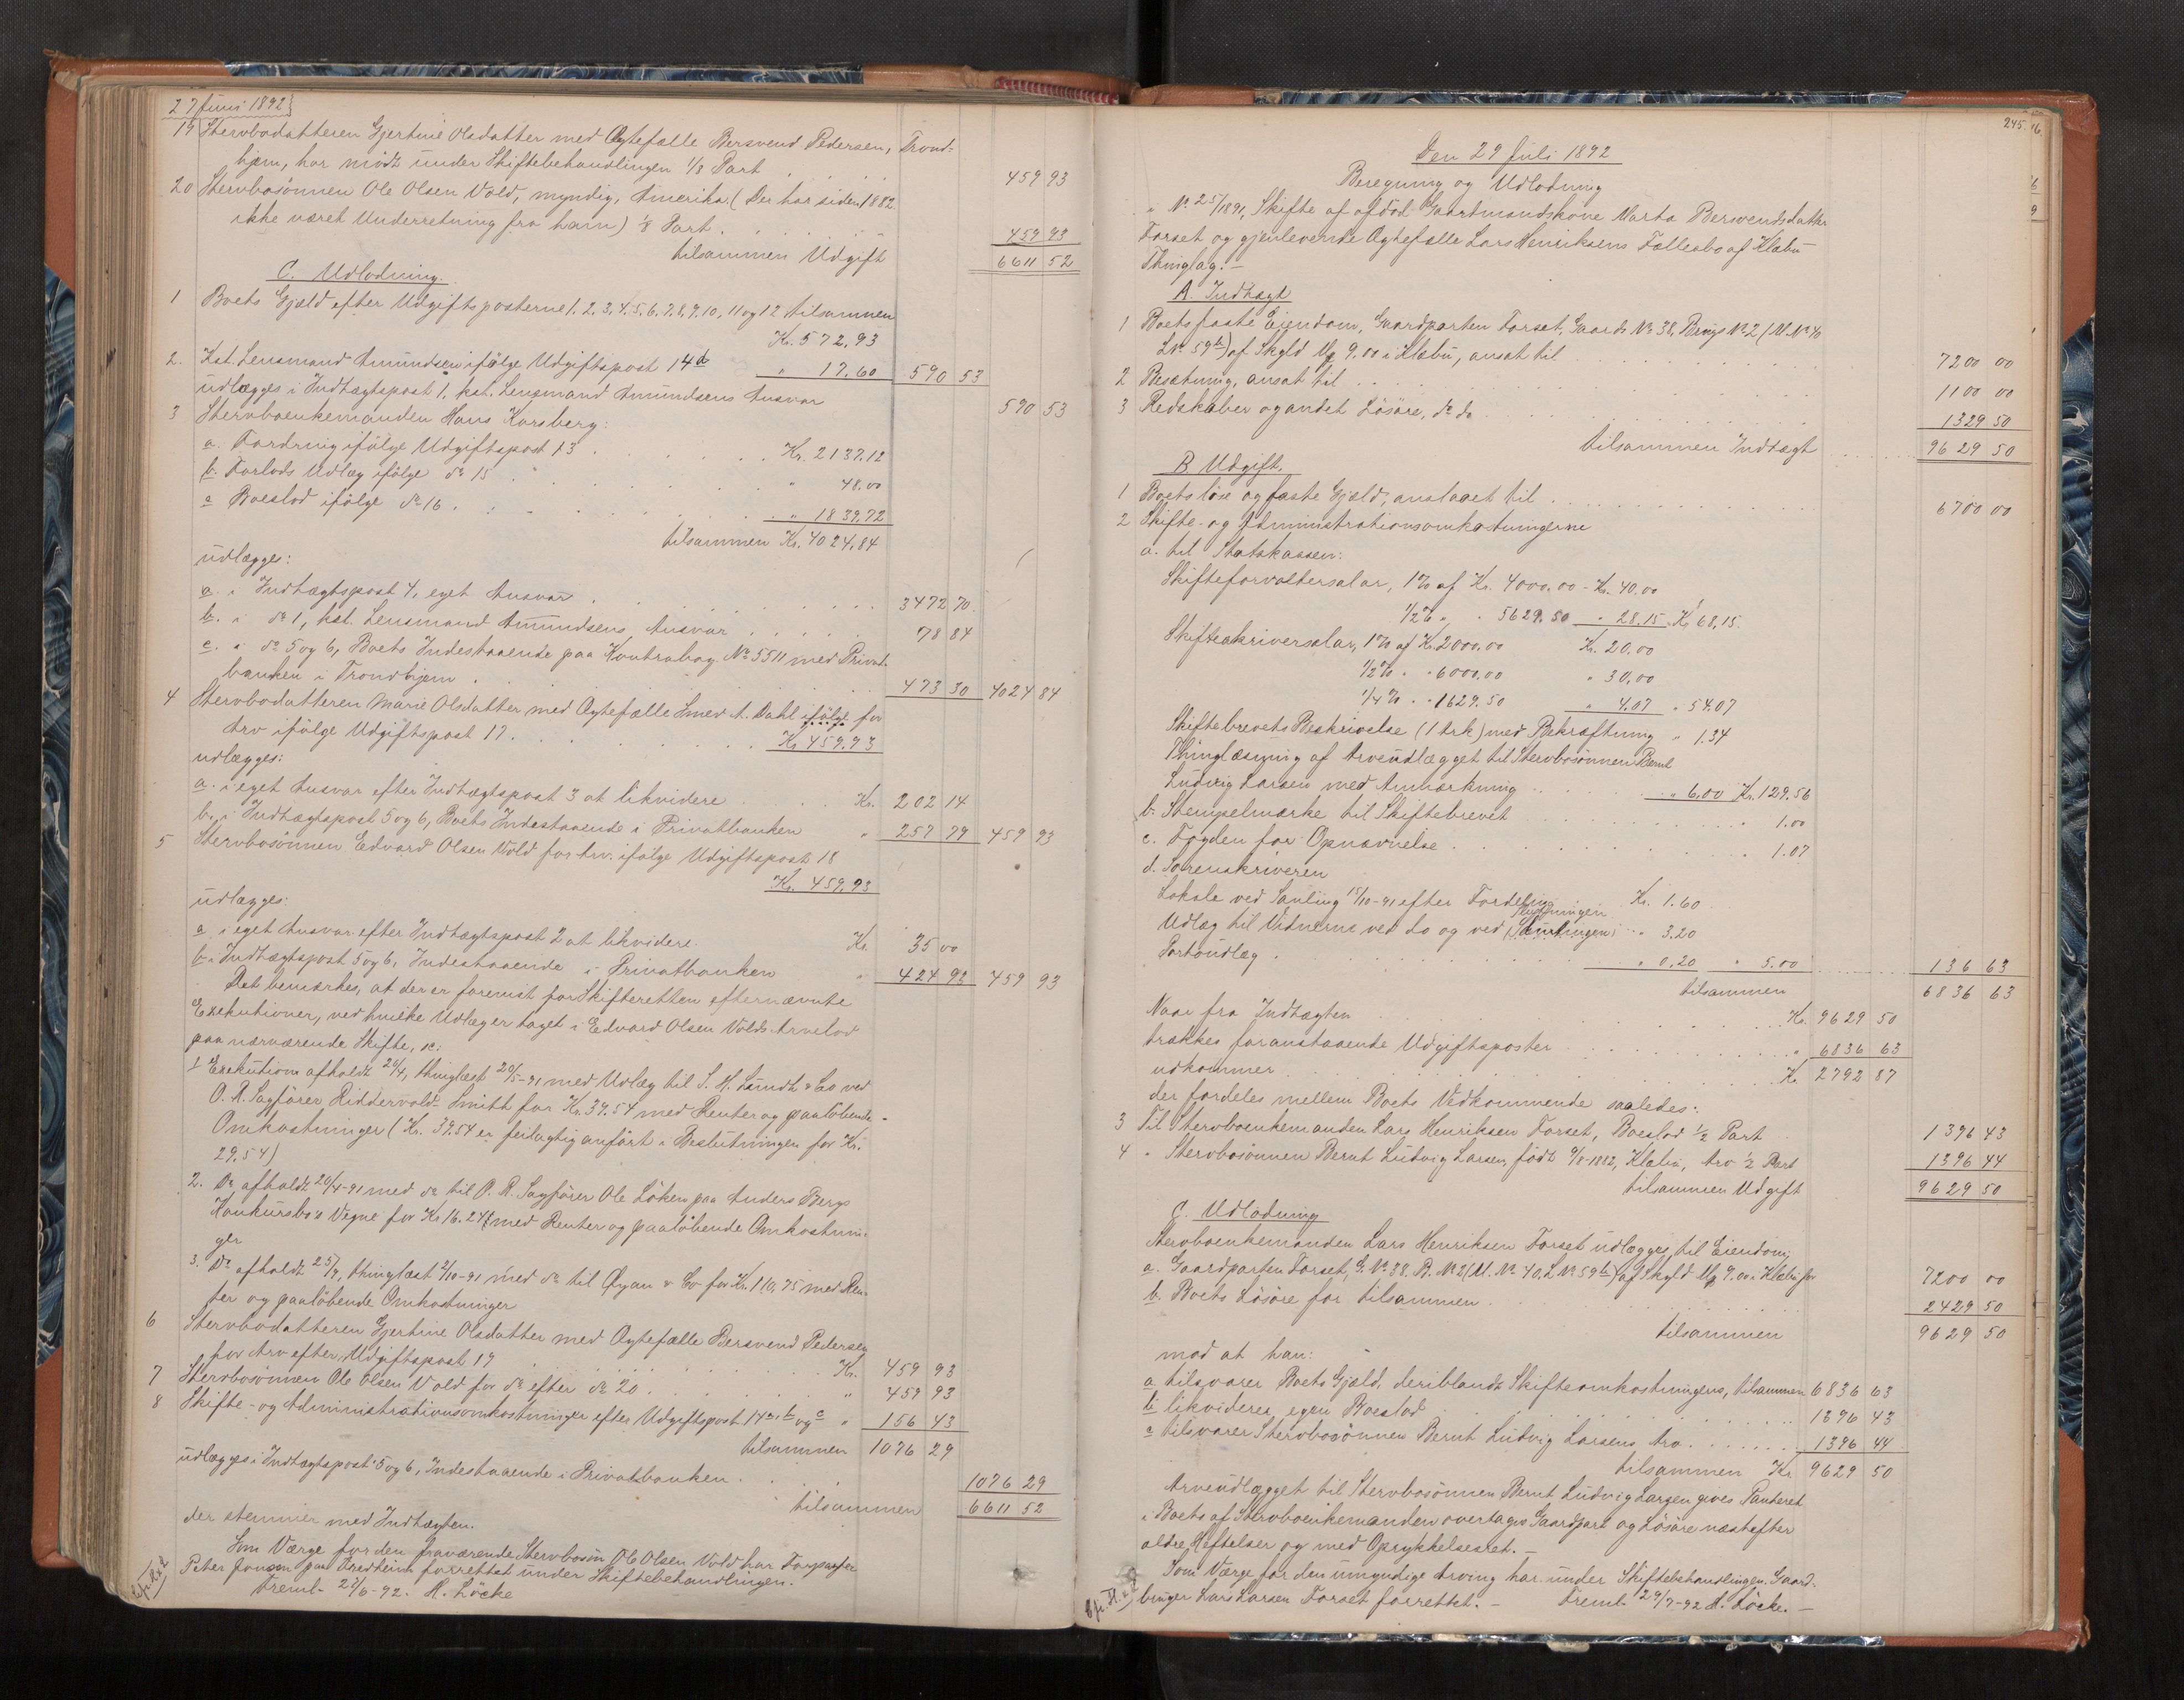 27 Juni 1892
19 Stervbodatteren Gjertine Olsdatter med Ægtefælle Bersvend Pedersen, Trond-
hjem, har mödt under Skiftebehandlingen 1/8 Part 459 93
20 Stervbosönnen Ole Olsen Vold, myndig, Amerika (Der har siden 1882
ikke været Underretning fra ham) 1/8 Part 459 93
tilsammen Udgift 6611 52
C. Udlodning.
1 Boets Gjæld efter Udgiftsposterne 1. 2. 3. 4. 5. 6. 7. 8. 9. 10, 11 og 12 tilsammen
Kr. 572.93
2. Kst. Lensmand Amundsen ifölge Udgiftspost 14 d " 17.60 590 53
udlægges i Indtægtspost 1, kst. Lensmand Amundsens Ansvar 590 53
3 Stervboenkemanden Hans Korsberg:
a. Fordring ifölge Udgiftspost 13 Kr. 2137.12
b. Forlods Udlæg ifölge do 15 " 48.00
c Boeslod ifölge do 16 " 1839.72
tilsammen Kr. 4024.84
udlægges:
a. i Indtægtspost 4, eget Ansvar 3472 70
b. i do 1, kst. Lensmand Amundsens Ansvar 78 84
c. " do 5 og 6, Boets Indestaaende paa Kontrabog No 5511 med Privat-
banken i Trondhjem 473 30 4024 84
4 Stervbodatteren Marie Olsdatter med Ægtefælle Smed A. Dahl ifölge for
Arv ifölge Udgiftspost 17. Kr 459.93
udlægges:
a. i eget Ansvar efter Indtægtspost 3 at likvidere Kr. 202 14
b. i Indtægtspost 5 og 6, Boets Indestaaende i Privatbanken " 257 79 459 93
5 Stervbosönnen Edvard Olsen Vold for Arv ifölge Udgiftspost 18
Kr. 459.93
udlægges:
a i eget Ansvar efter Indtægtspost 2 at likvidere Kr. 35 00
b. i Indtægtspost 5 og 6, Indestaaende i Privatbanken " 424 93 459 93
Det bemærkes, at der er foremist for Skifteretten efternævnte
Exekutioner, ved hvilke Udlæg er taget i Edvard Olsen Volds Arvelod
paa nærværende Skifte, sc:
1 Exekution afholdt 20/4, thinglæst 20/5-91 med Udlæg til S. H. Lundt & Co ved
O. R. Sagförer Riddervold Smith for Kr. 39.54 med Renter og paalöbende
Omkostninger (Kr. 39.54 er feilagtig anfört i Beslutningen for Kr.
29.54)
2. Do afholdt 20/4-91 med do til O. R. Sagförer Ole Löken paa Anders Bergs
Konkursbo's Vegne for Kr 16.24 med Renter og paalöbende Omkostnin-
ger
3. Do afholdt 25/9, thinglæst 2/10-91 med do til Öyan & Co for Kr. 110,75 med Ren-
ter og paalöbende Omkostninger
6 Stervbodatteren Gjertine Olsdatter med Ægtefælle Bersvend Pedersen
for Arv efter Udgiftspost 19 Kr. 459 93
7 Stervbosönnen Ole Olsen Vold for do efter do 20 " 459 93
8 Skifte- og Administrationsomkostninger efter Udgiftspost 14 a, b og c " 156 43
tilsammen 1076 29
udlægges i Indtægtspost 5 og 6, Indestaaende i Privatbanken 1076 29
tilsammen 6611 52
der stemmer med Indtægten.
Som Værge for den fraværende Stervbosön Ole Olsen Vold har
Peter Jonsen paa forrettet under Skiftebehandlingen.
Freml. 27/6-92. H. Löcke
245.
Den 29 Juli 1892
Beregning og Udlodning
" No 25/1891, Skifte af afdöd Gaardmandskone Marta Bersvendsdatter
Forset og gjenlevende Ægtefælle Lars Henriksens Fællesbo af Klæbu
Thinglag. -
A. Indtægt
1 Boets faste Eiendom, Gaardparten Forset, Gaards No 38, Brugs No 2 (M. No 40
L No 59 b) af Skyld Mk 9.00 i Klæbu, ansat til 7200 00
2 Besætning, ansat til 1100 00
3 Redskaber og andet Lösöre, do do 1329 50
tilsammen Indtægt 9629 50
B. Udgift.
1 Boets löse og faste Gjæld, anslaaet til 6700 00
2 Skifte- og Administrationsomkostningerne
a. til Statskassen:
Skifteforvaltersalar, 1% af Kr. 4000.00 - Kr. 40.00
1/2% " " 5629.50 " 28.15 Kr 68,15.
Skifteskriversalar, 1% af Kr. 2000.00 Kr. 20.00
1/2% " " 6000.00 " 30.00
1/4% " " 1629.50 " 4.07 " 54.07
Skiftebrevets Beskrivelse (1 Ark) med Bekræftning " 1.34
Thinglæsning af Arveudlægget til Stervbosönnen Bernt
Ludvig Larsen med Anmærkning " 6.00 Kr. 129.56
b. Stempelmærke til Skiftebrevet " 1.00
c. Fogden for Opnævnelse " 1.07
d. Sorenskriveren
Lokale ved Samling 15/10-91 efter Fordeling Kr. 1.60
Udlæg til Vidnerne ved do og ved Slutningen " 3.20
Portoudlæg " 0.20 " 5.00 136 63
tilsammen 6836 63
Naar fra Indtægten Kr. 9629 50
trækkes foranstaaende Udgiftsposter " 6836 63
udkommer Kr. 2792 87
der fordeles mellem Boets Vedkommende saaledes:
3 Til Stervboenkemanden Lars Henriksen Forset, Boeslod 1/2 Part 1396 43
4 " Stervbosönnen Bernt Ludvig Larsen, född 9/8-1882, Klæbu, Arv 1/2 Part 1396 44
tilsammen Udgift 9629 50
C. Udlodning
Stervboenkemanden Lars Henriksen Forset udlægges til Eiendom;
a. Gaardparten Forset, G. No 38. B. No 2 (M. No 40. L No 59 b) af Skyld Mk 9.00 i Klæbu for 7200 00
b. Boets Lösöre for tilsammen 2429 50
tilsammen 9629 50
mod at han:
a tilsvarer Boets Gjæld, deriblandt Skifteomkostningerne, tilsammen 6836 63
b likviderer egen Boeslod 1396 43
c tilsvarer Stervbosönnen Bernt Ludvig Larsens Arv 1396 44
tilsammen Kr 9629 50
Arveudlægget til Stervbosönnen Bernt Ludvig Larsen gives Panteret
i Boets af Stervboenkemanden overtagne Gaardpart og Lösöre næstefter
ældre Heftelser og med Oprykkelsesret. -
Som Værge for den umyndige Arving har under Skiftebehandlingen Gaard-
bruger Lars Larsen Forset forrettet. - Freml. 29/7-92 H. Löcke. -